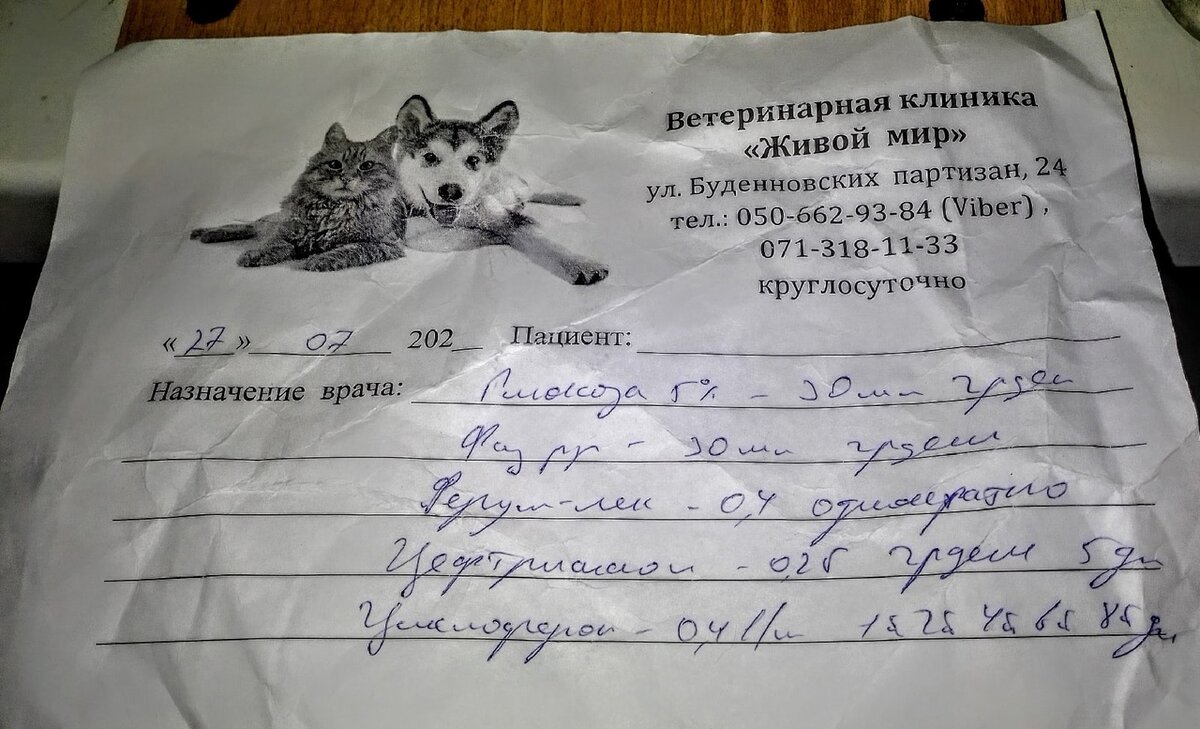 Ветеринарная клиника
«Живой мир»
ул. Буденновских партизан, 24
тел.: 050-662-93-84 (Viber) ,
071-318-11-33
круглосуточно
« 27 » 07 202__ Пациент:
Назначение врача: Глюкоза 5% - 30 мл
Физ рр - 30 мл
Ферум-лек - 0,4 однократно
Цефтриаксон - 5 дн
Циклоферон - 0,4 в/м 1й 2й 4й 6й 8й дн